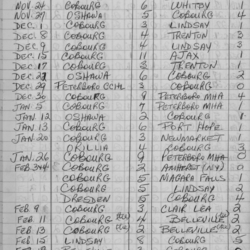 NOV. 24 COBOURG 6 WHITBY 1
NOV. 27 OSHAWA 5 COBOURG 4
DEC. 1 COBOURG 3 LINDSAY
DEC. 8 COBOURG 4 TRENTON 3
DEC. 9 COBOURG 4 LINDSAY 3
DEC. 15 COBOURG 11 AJAX 1
DEC. 17 COBOURG TRENTON 1
DEC. 21 OSHAWA 6 COBOURG 2
DEC. 29 PETERBORO CCHL 3 COBOURG 0
DEC. 30 COBOURG 9 PETERBORO MHA 4
JAN. 5 COBOURG 7 PETERBORO MHA
JAN 12 OSHAWA 2 COBOURG 1
JAN. 13 COBOURG 6 PORT HOPE
JAN. 20 COBOURG 3 NEWMARKET 1
ORILLIA 4 COBOURG 3
JAN. 26 COBOURG 9 PETERBORO MHA 0
FEB. COBOURG 2 AMHERST (NY) 0
COBOURG 5 NIAGARA FALLS 1
COBOURG 5 LINDSAY 2
DRESDEN 5 COBOURG 4
FEB 9 COBOURG 3 CLAIR LEA 2
FEB 11 COBOURG 4 BELLEVILLE 2
FEB 13 COBOURG 2 BELLEVILLE 2
FEB 15 LINDSAY 8 COBOURG 2